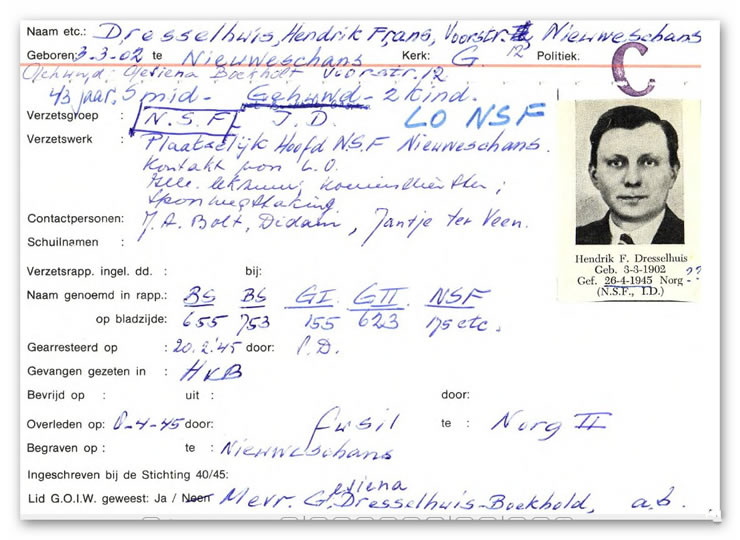 Naam etc.: Dresselhuis, Hendrik Frans, Voorstr. 12 Nieuweschans
Geboren: 3-3-02 te Nieuweschans Kerk: G Politiek.
C
Voorstr. 12
43 jaar. Gehuwd - 2 kind.
Verzetsgroep : N.S.F. I.D. LO NSF
Verzetswerk : Plaatselijk Hoofd N.S.F Nieuweschans.
Kontakt L.O.
Spoorwegstaking
Contactpersonen: J.A. Bolt, Didam, Jantje ter Veen.
Schuilnamen :
Hendrik F. Dresselhuis
Geb. 3-3-1902
Gef. 26-4-1945 Norg ??
(N.S.F., I.D.)
Verzetsrapp. ingel. dd. : bij:
Naam genoemd in rapp.: BS BS GI GII NSF
op bladzijde: 655 753 155 623 175 etc.
Gearresteerd op : 20.2.'45 door: S.D.
Gevangen gezeten in : HvB
Bevrijd op : uit : door:
Overleden op: -4-45 door: fusil te : Norg II
Begraven op : te : Nieuweschans
Ingeschreven bij de Stichting 40/45:
Lid G.O.I.W. geweest: Ja / Neen Mevr. Gesiena Dresselhuis-Boekhold, a.b.